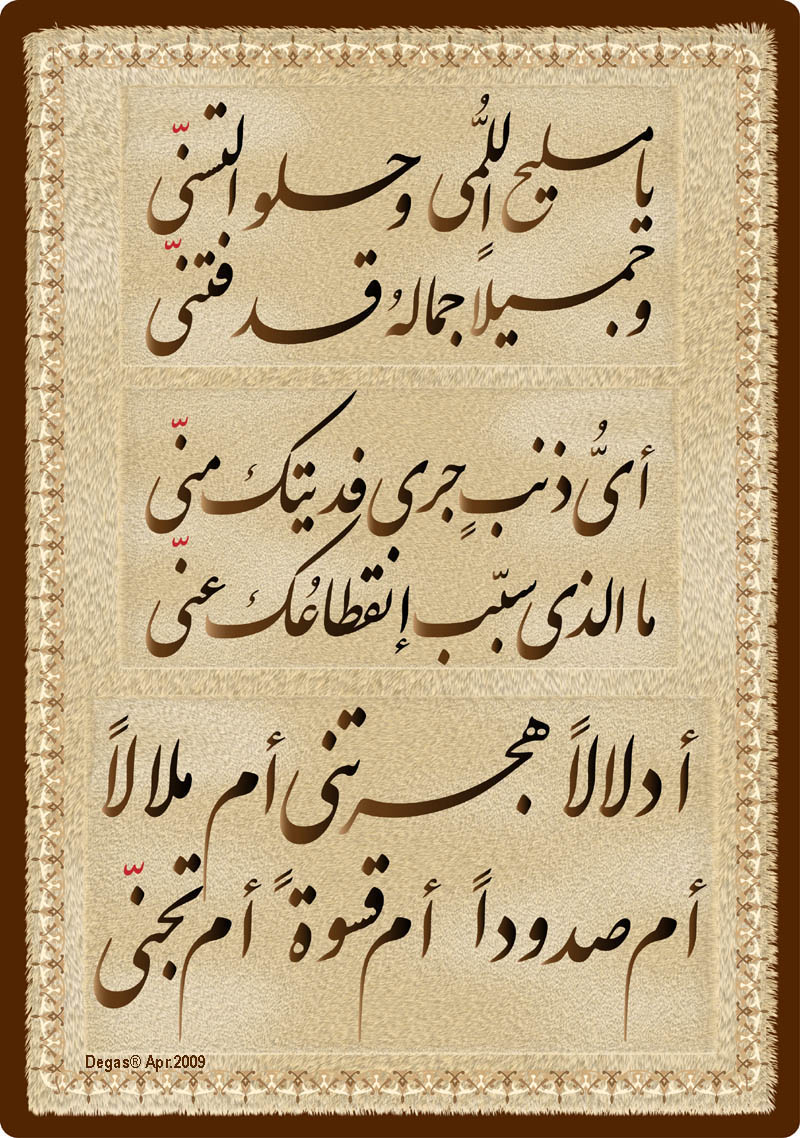 يا مليح اللُّمى وحلو التسنّى
وجميلاً جمالهُ قد فتنّى
أىُّ ذنبٍ جرى فديتك منّى
ما الذى سبّب إنقطاعُك عنّى
أدلالاً هجرتنى أم ملالاً
أم صدوداً أم قسوةً أم تجنّى
Degas® Apr.2009